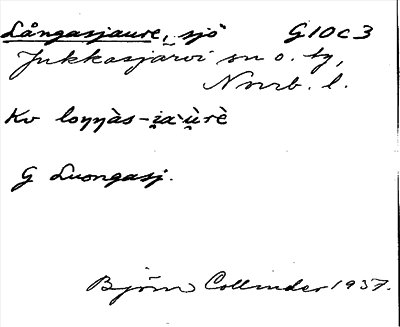 Långasjaure, sjö G10c3
Jukkasjärvi sn o. tg,
Nrrb. l.
Kv loŋŋàs-i̯a`u̯rè
G Luongasj.
Björn Collinder 1937.